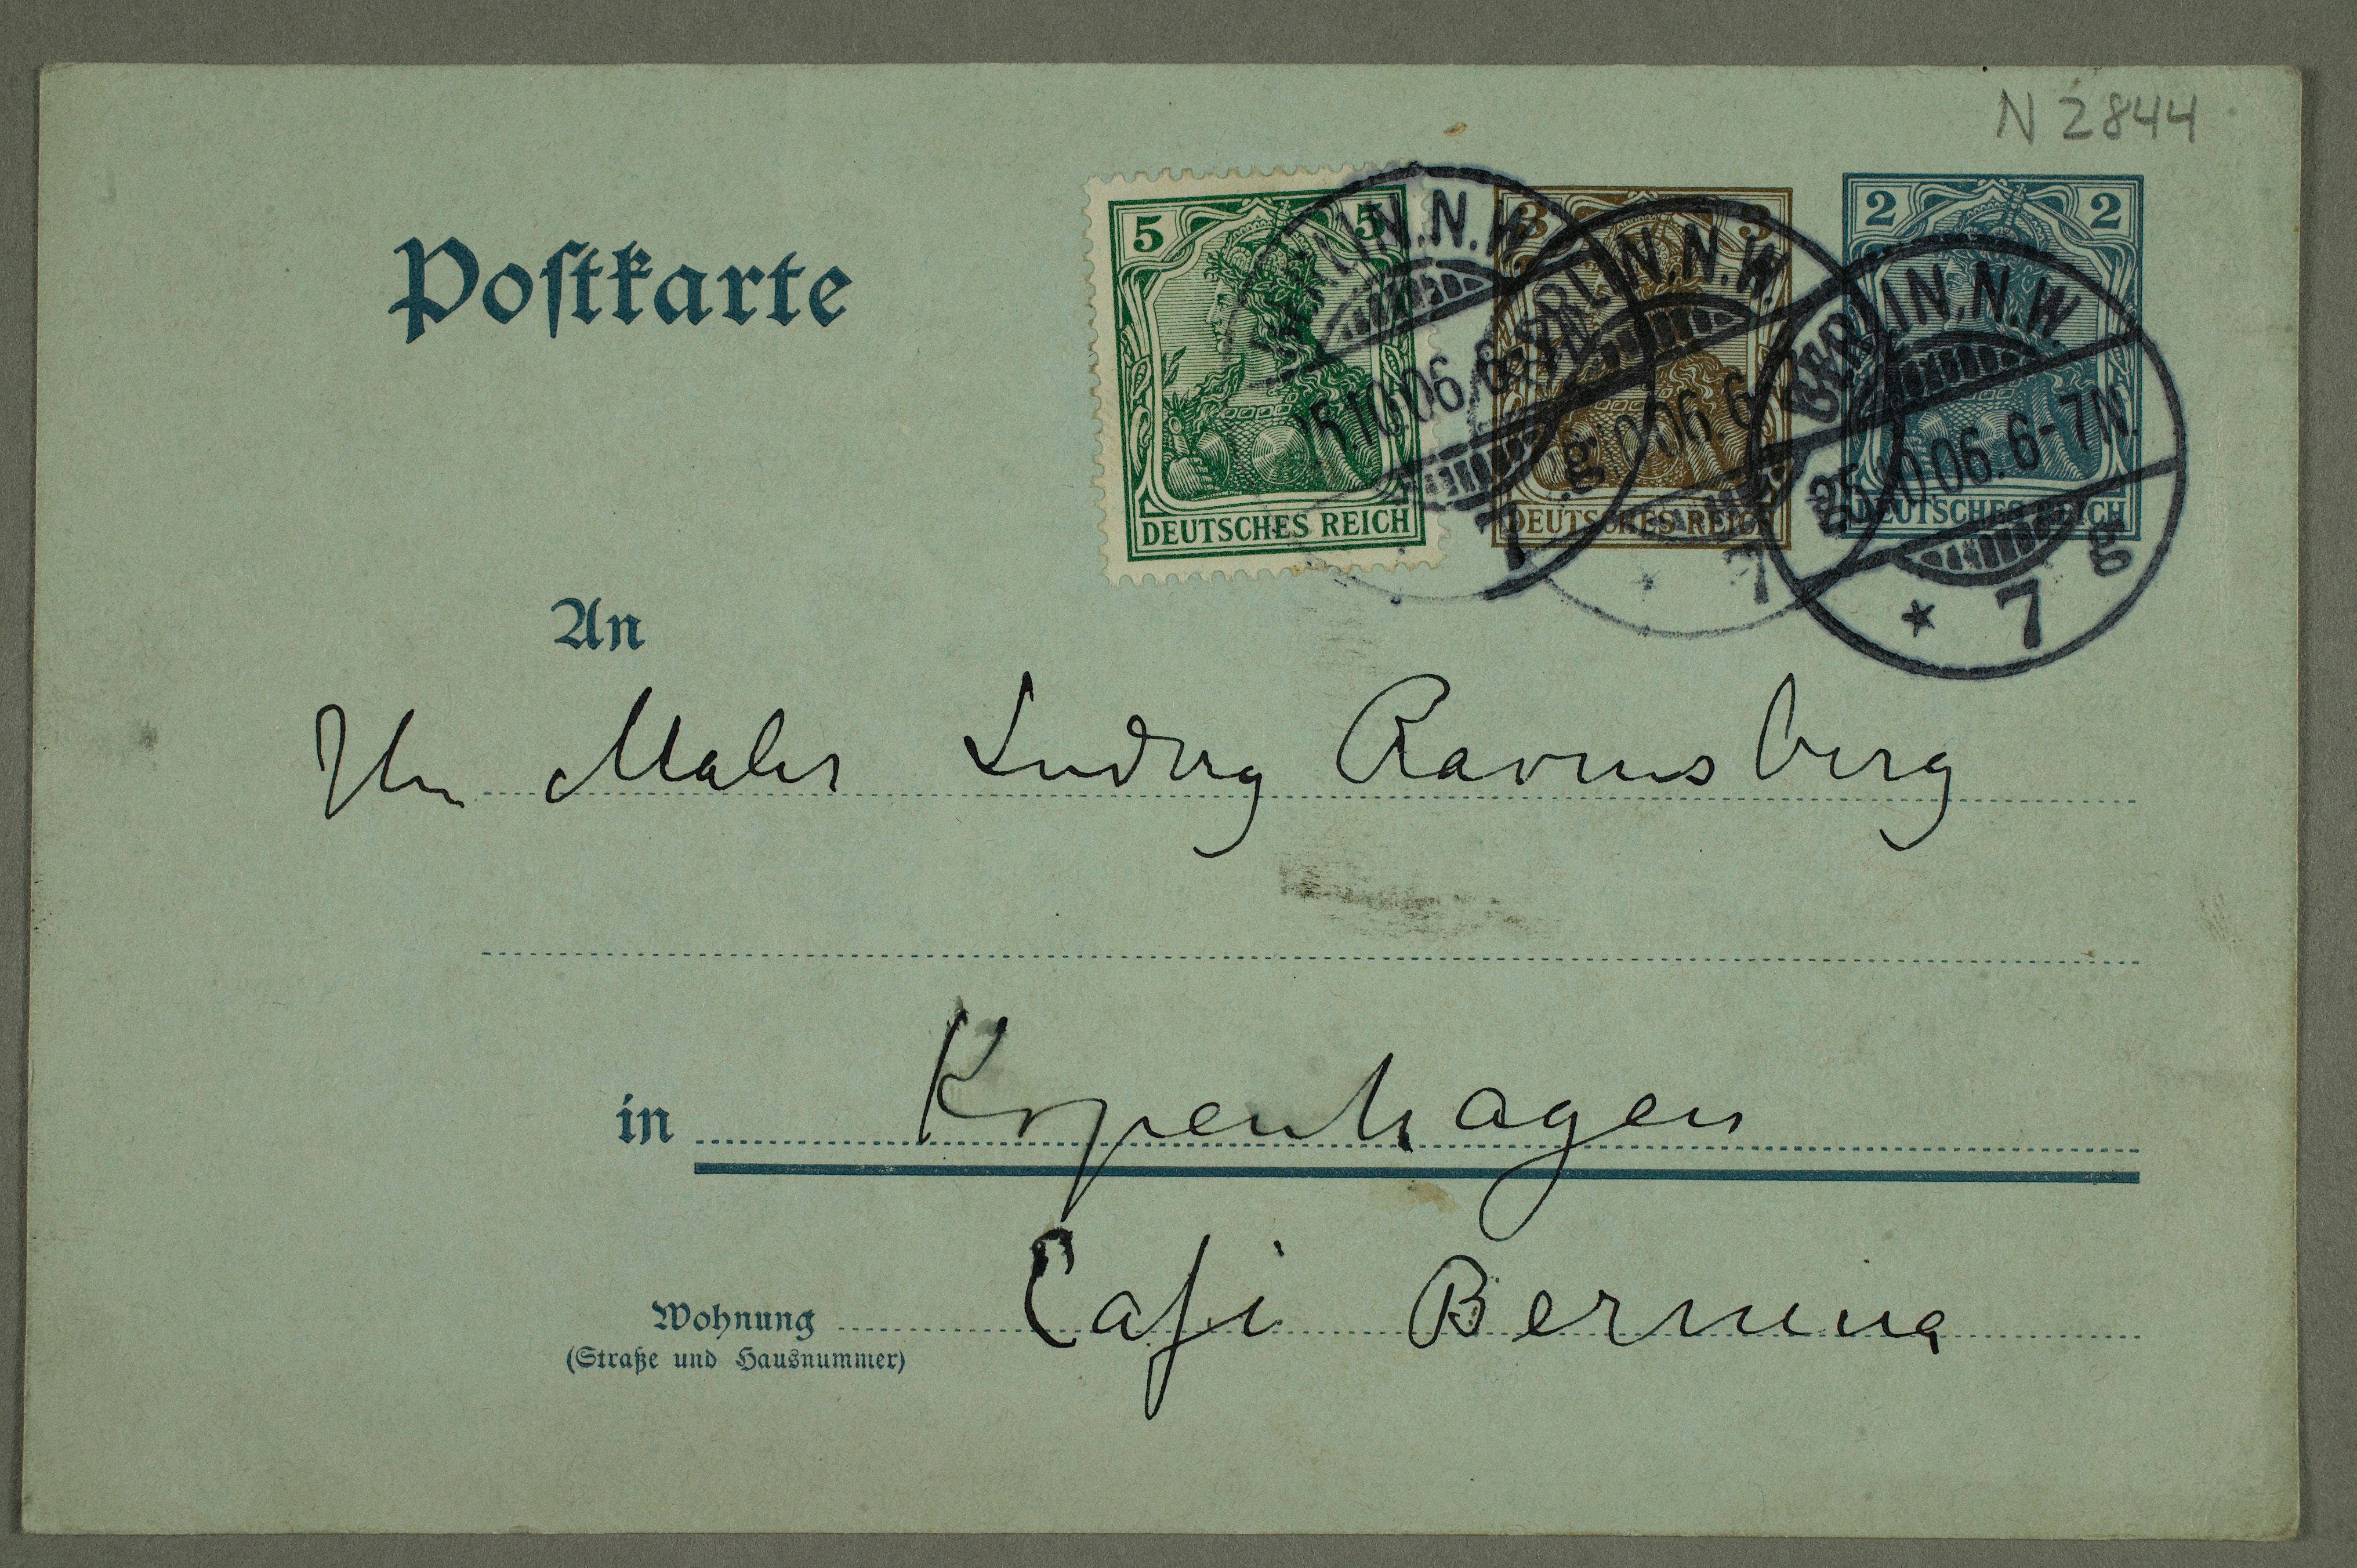 N 2844
Postkarte
5 5
DEUTSCHES REICH
3 3
DEUTSCHES REICH
2 2
DEUTSCHES REICH
BERLIN.N.W.
BERLIN.N.W.
BERLIN.N.W.
25.10.06.6-7N.
* 7 g
An
Hrn Maler Ludvig Ravensberg
in Kopenhagen
Wohnung Café Bernina
(Straße und Hausnummer)